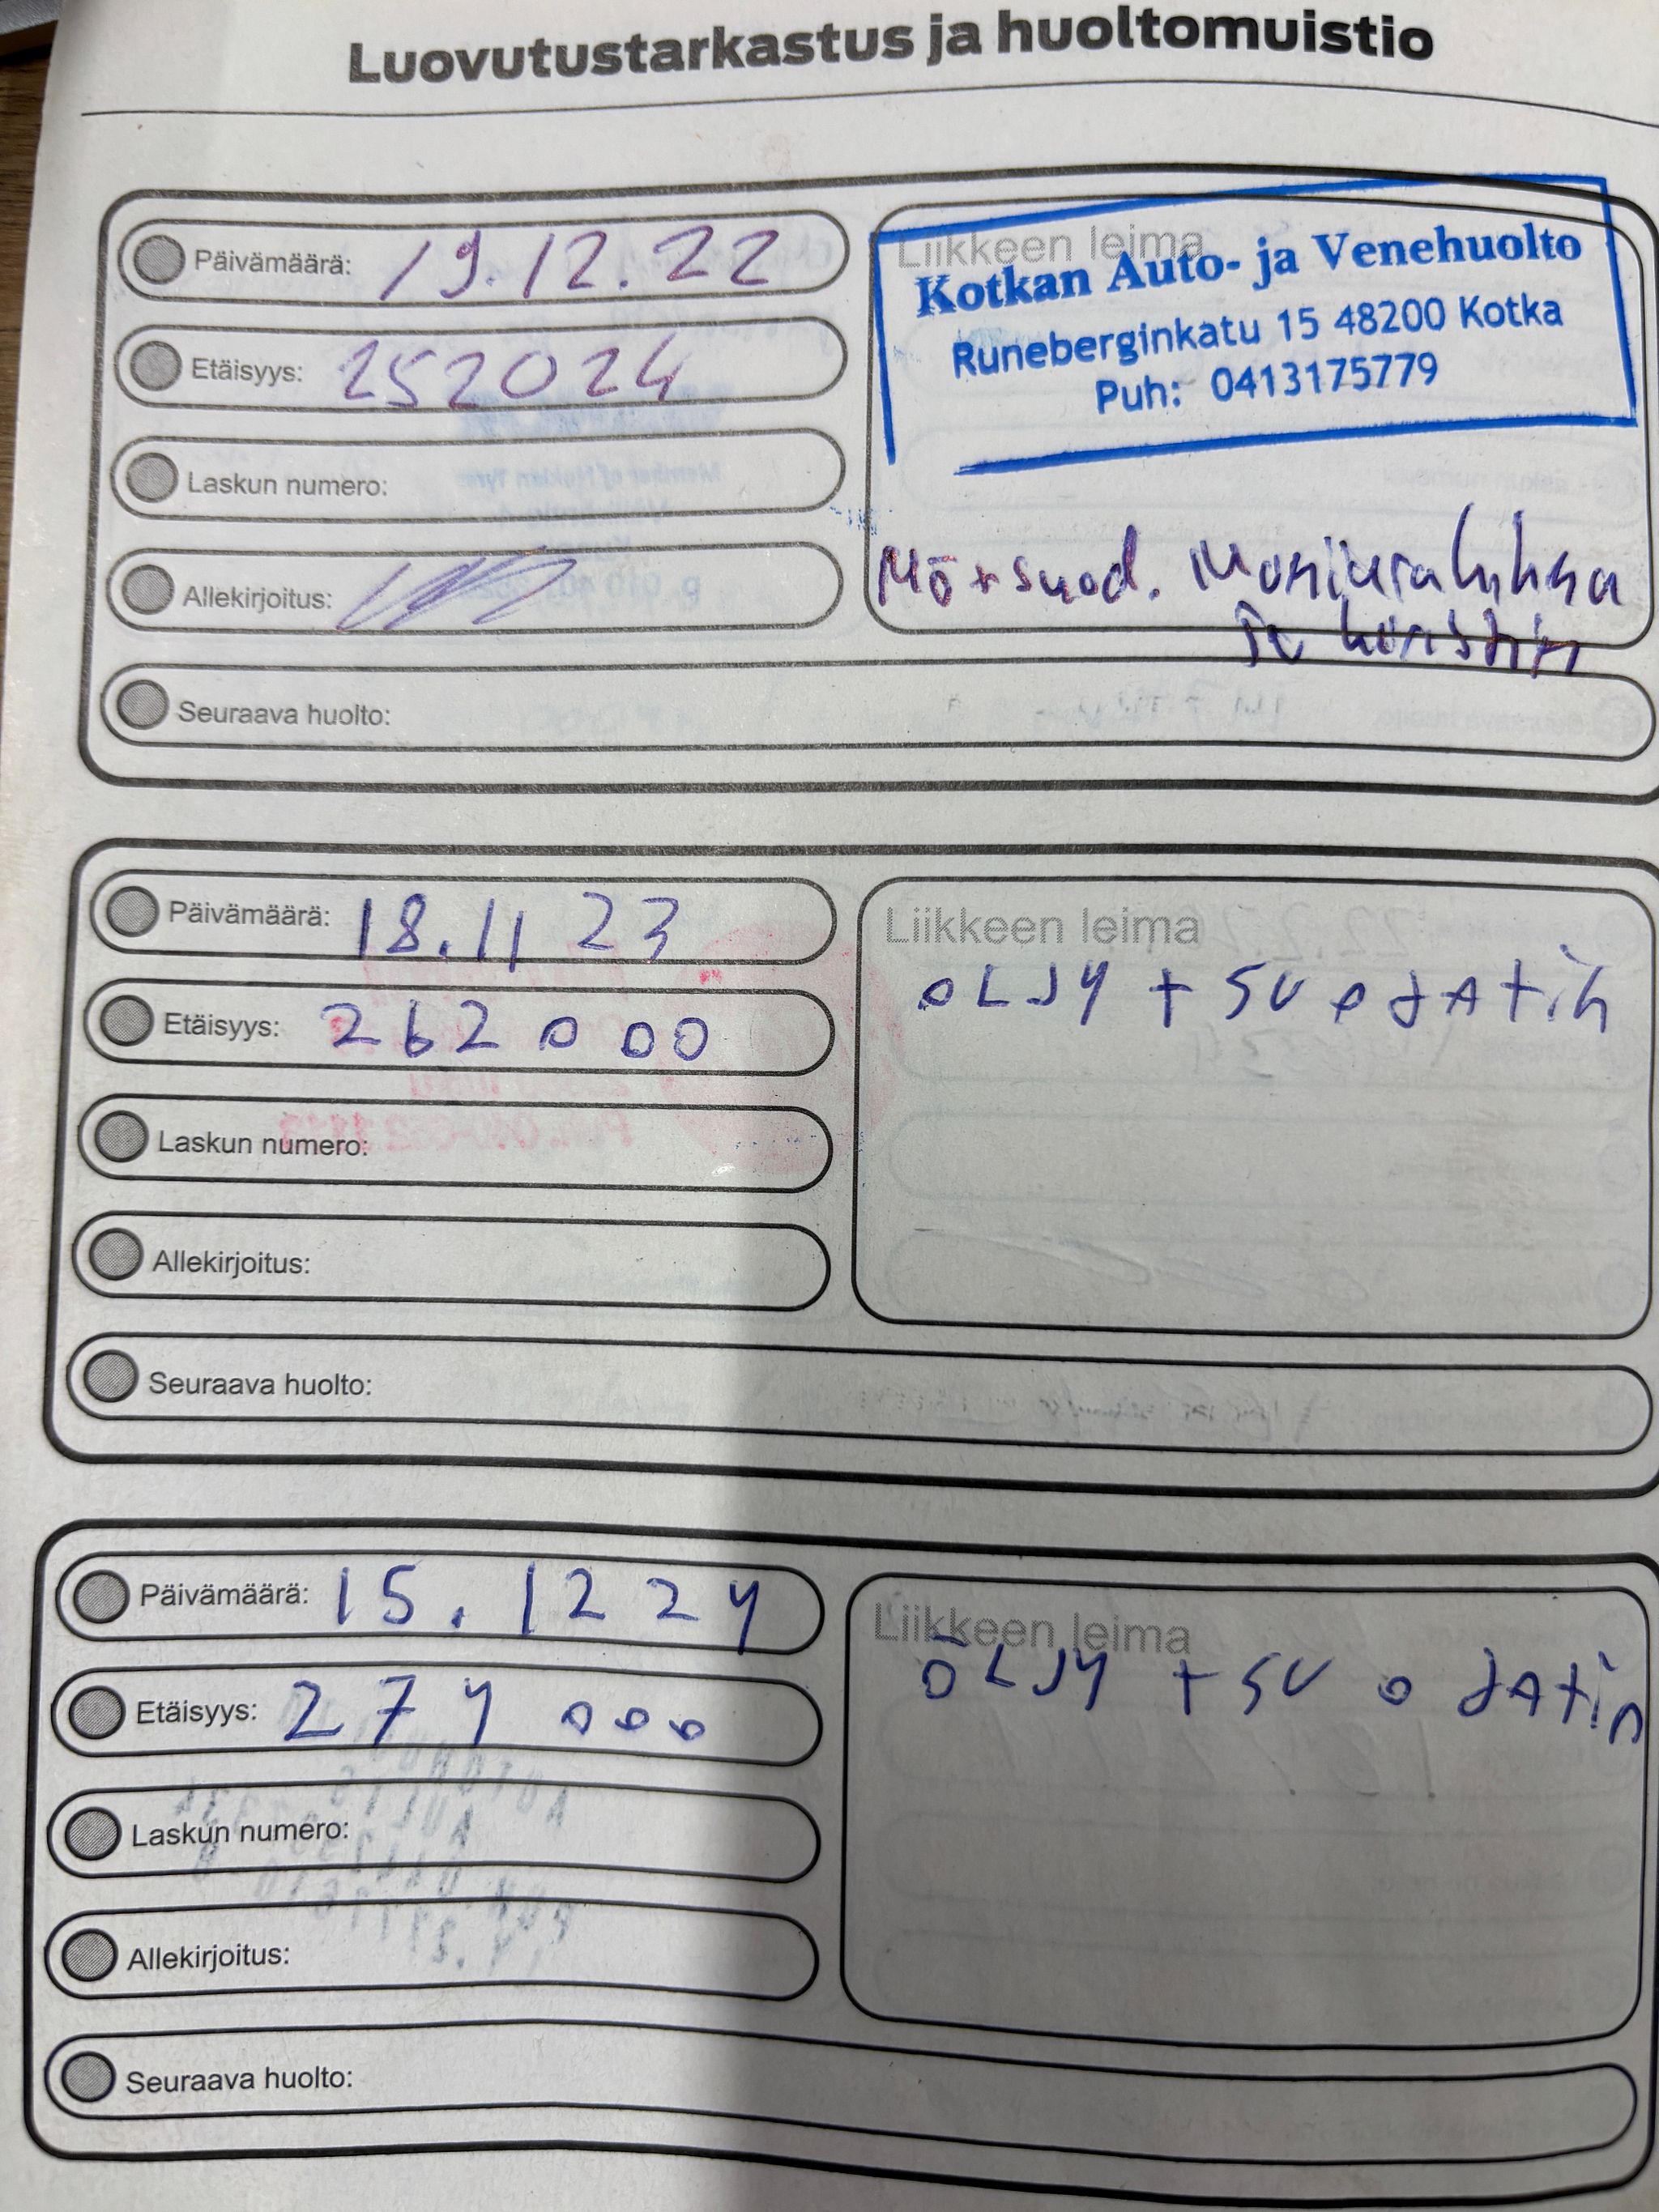 Luovutustarkastus ja huoltomuistio
Päivämäärä: 19.12.22
Etäisyys: 252024
Laskun numero:
Allekirjoitus:
Liikkeen leima
Kotkan Auto- ja Venehuolto
Runeberginkatu 15 48200 Kotka
Puh: 0413175779
Mö+suod. Moniurahihna
ja kiristin
Seuraava huolto:
Päivämäärä: 18.11 23
Etäisyys: 262 000
Laskun numero:
Allekirjoitus:
Liikkeen leima
OLJY + SUODATIN
Seuraava huolto:
Päivämäärä: 15.12 24
Etäisyys: 274 000
Laskun numero:
Allekirjoitus:
Liikkeen leima
ÖLJY + SUODATIN
Seuraava huolto: